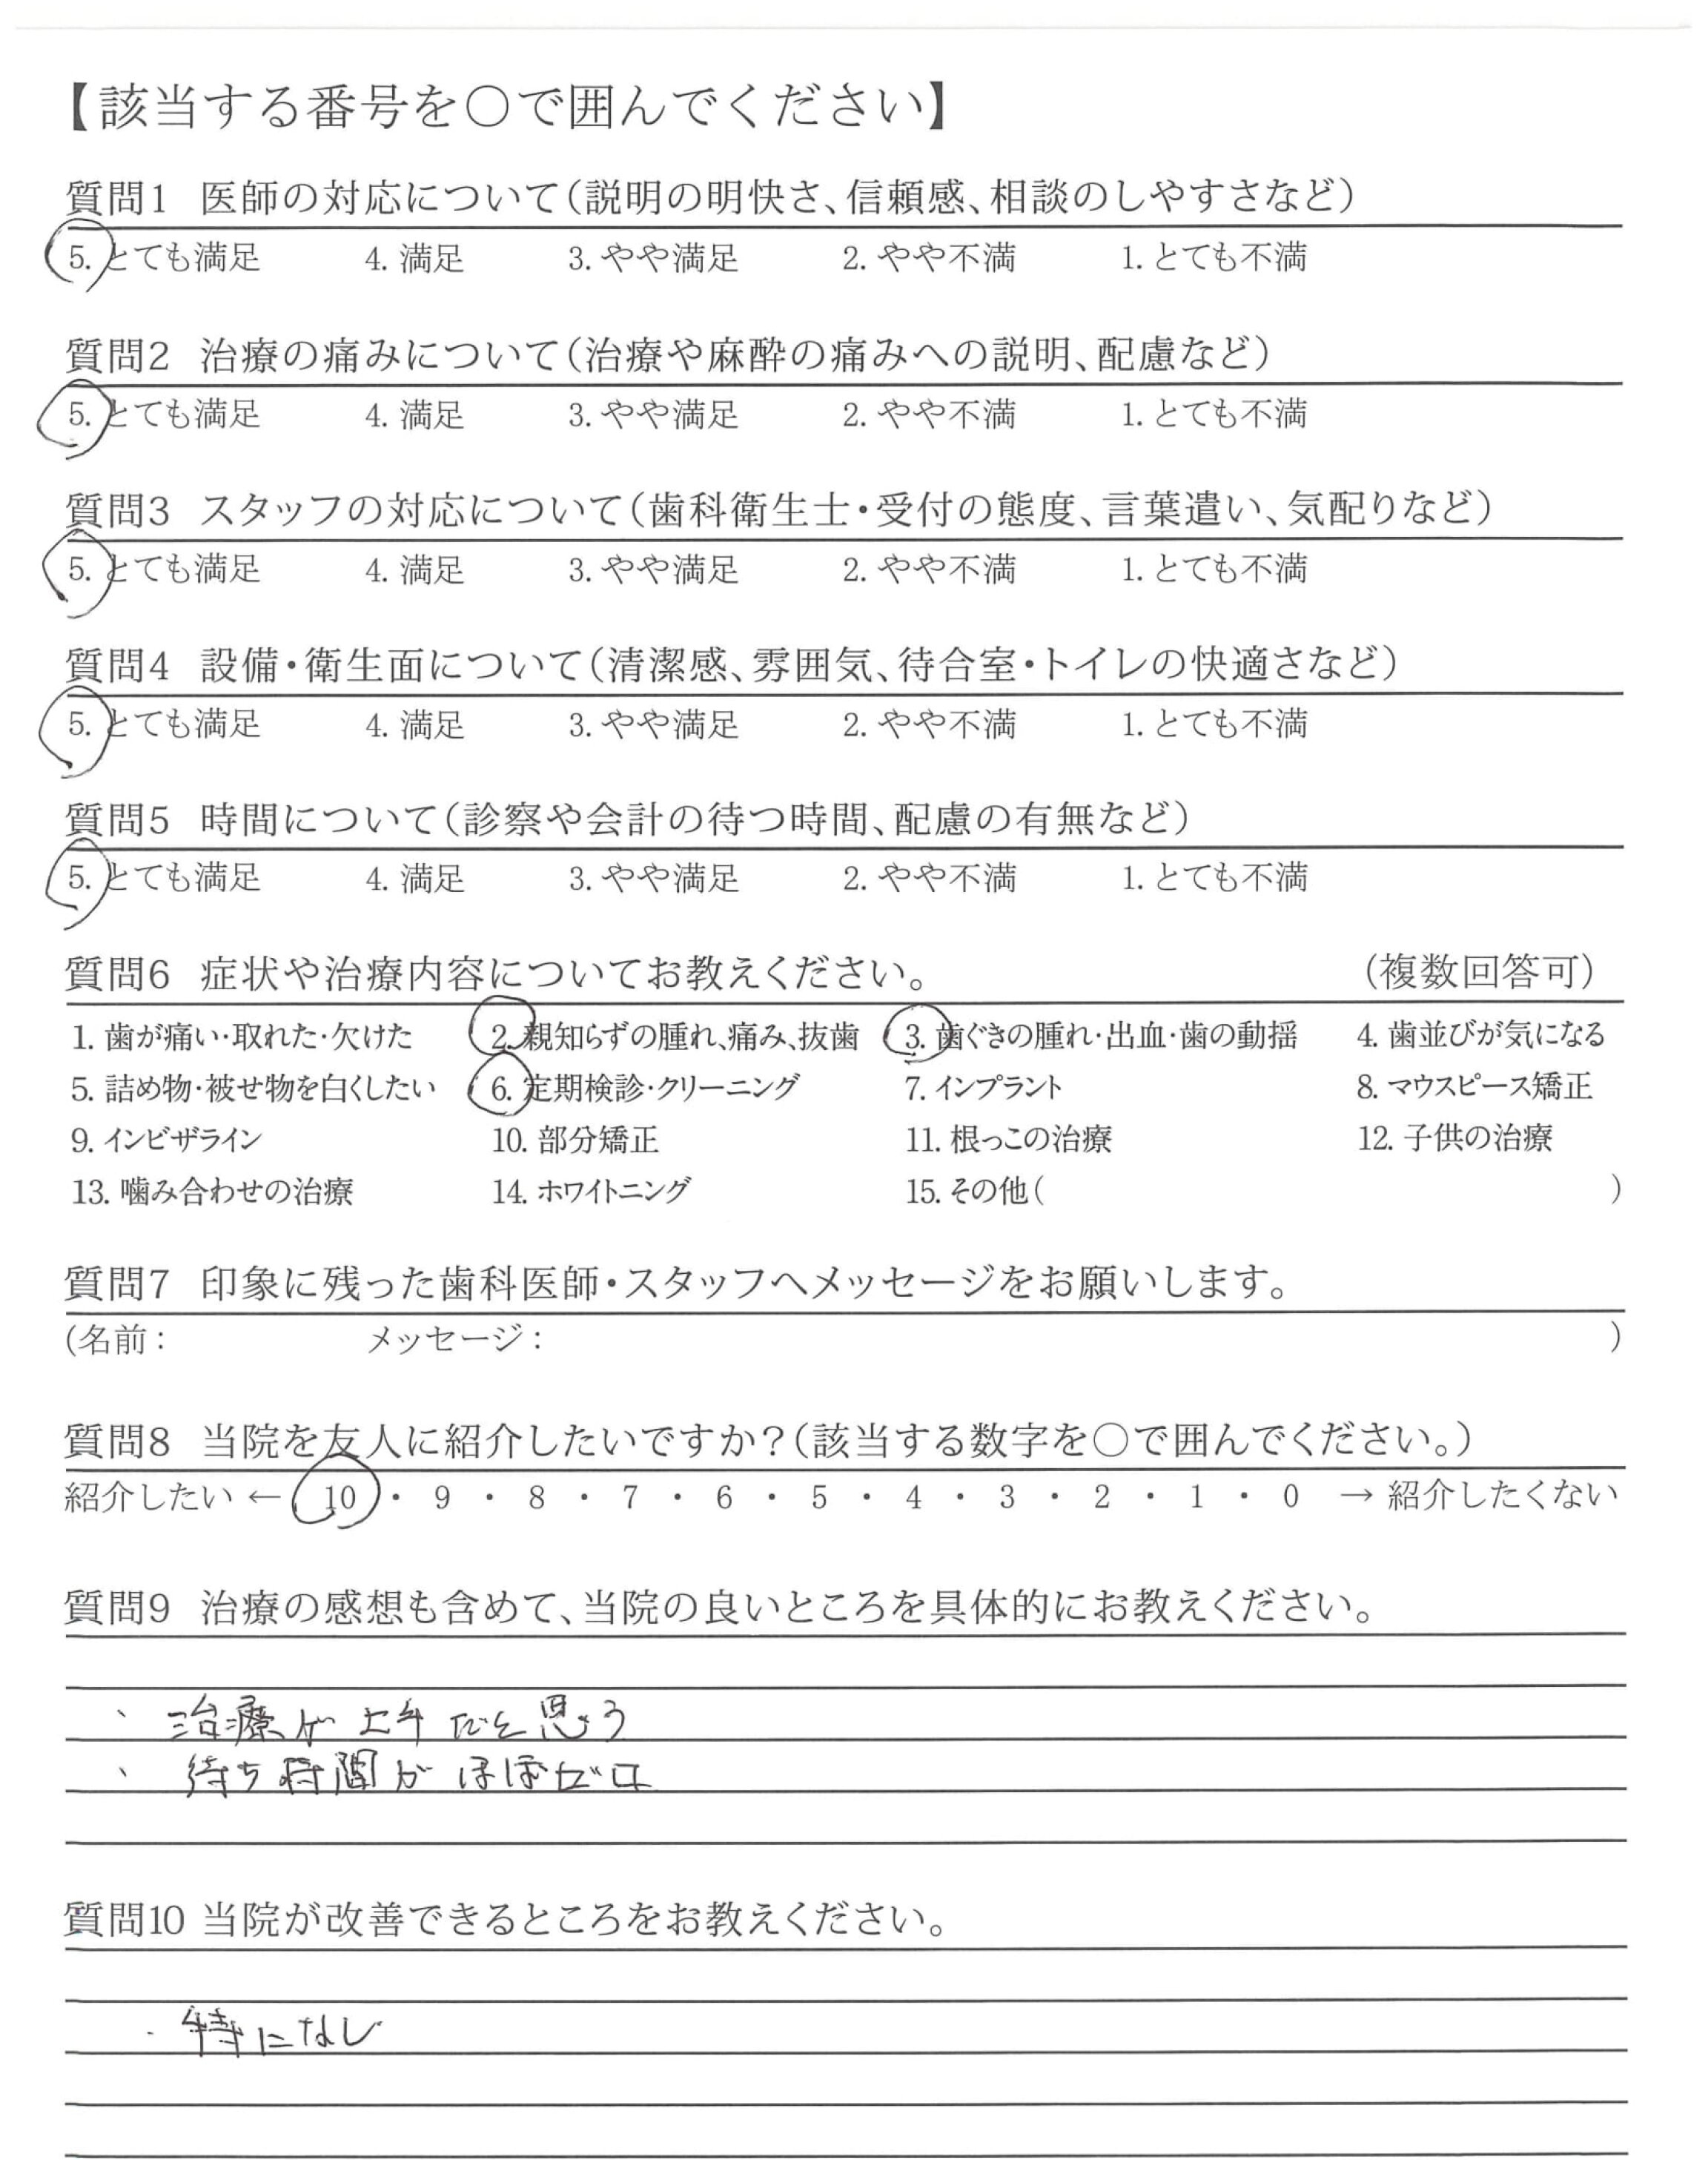 【該当する番号を〇で囲んでください】
質問1 医師の対応について（説明の明快さ、信頼感、相談のしやすさなど）
5. とても満足 4. 満足 3. やや満足 2. やや不満 1. とても不満
質問2 治療の痛みについて（治療や麻酔の痛みへの説明、配慮など）
5. とても満足 4. 満足 3. やや満足 2. やや不満 1. とても不満
質問3 スタッフの対応について（歯科衛生士・受付の態度、言葉遣い、気配りなど）
5. とても満足 4. 満足 3. やや満足 2. やや不満 1. とても不満
質問4 設備・衛生面について（清潔感、雰囲気、待合室・トイレの快適さなど）
5. とても満足 4. 満足 3. やや満足 2. やや不満 1. とても不満
質問5 時間について（診察や会計の待つ時間、配慮の有無など）
5. とても満足 4. 満足 3. やや満足 2. やや不満 1. とても不満
質問6 症状や治療内容についてお教えください。 （複数回答可）
1. 歯が痛い・取れた・欠けた 2. 親知らずの腫れ、痛み、抜歯 3. 歯ぐきの腫れ・出血・歯の動揺 4. 歯並びが気になる
5. 詰め物・被せ物を白くしたい 6. 定期検診・クリーニング 7. インプラント 8. マウスピース矯正
9. インビザライン 10. 部分矯正 11. 根っこの治療 12. 子供の治療
13. 噛み合わせの治療 14. ホワイトニング 15. その他（ ）
質問7 印象に残った歯科医師・スタッフへメッセージをお願いします。
（名前： メッセージ： ）
質問8 当院を友人に紹介したいですか？（該当する数字を〇で囲んでください。）
紹介したい ← 10 ・ 9 ・ 8 ・ 7 ・ 6 ・ 5 ・ 4 ・ 3 ・ 2 ・ 1 ・ 0 → 紹介したくない
質問9 治療の感想も含めて、当院の良いところを具体的にお教えください。
、治療が上手だと思う
、待ち時間がほぼゼロ
質問10 当院が改善できるところをお教えください。
・特になし